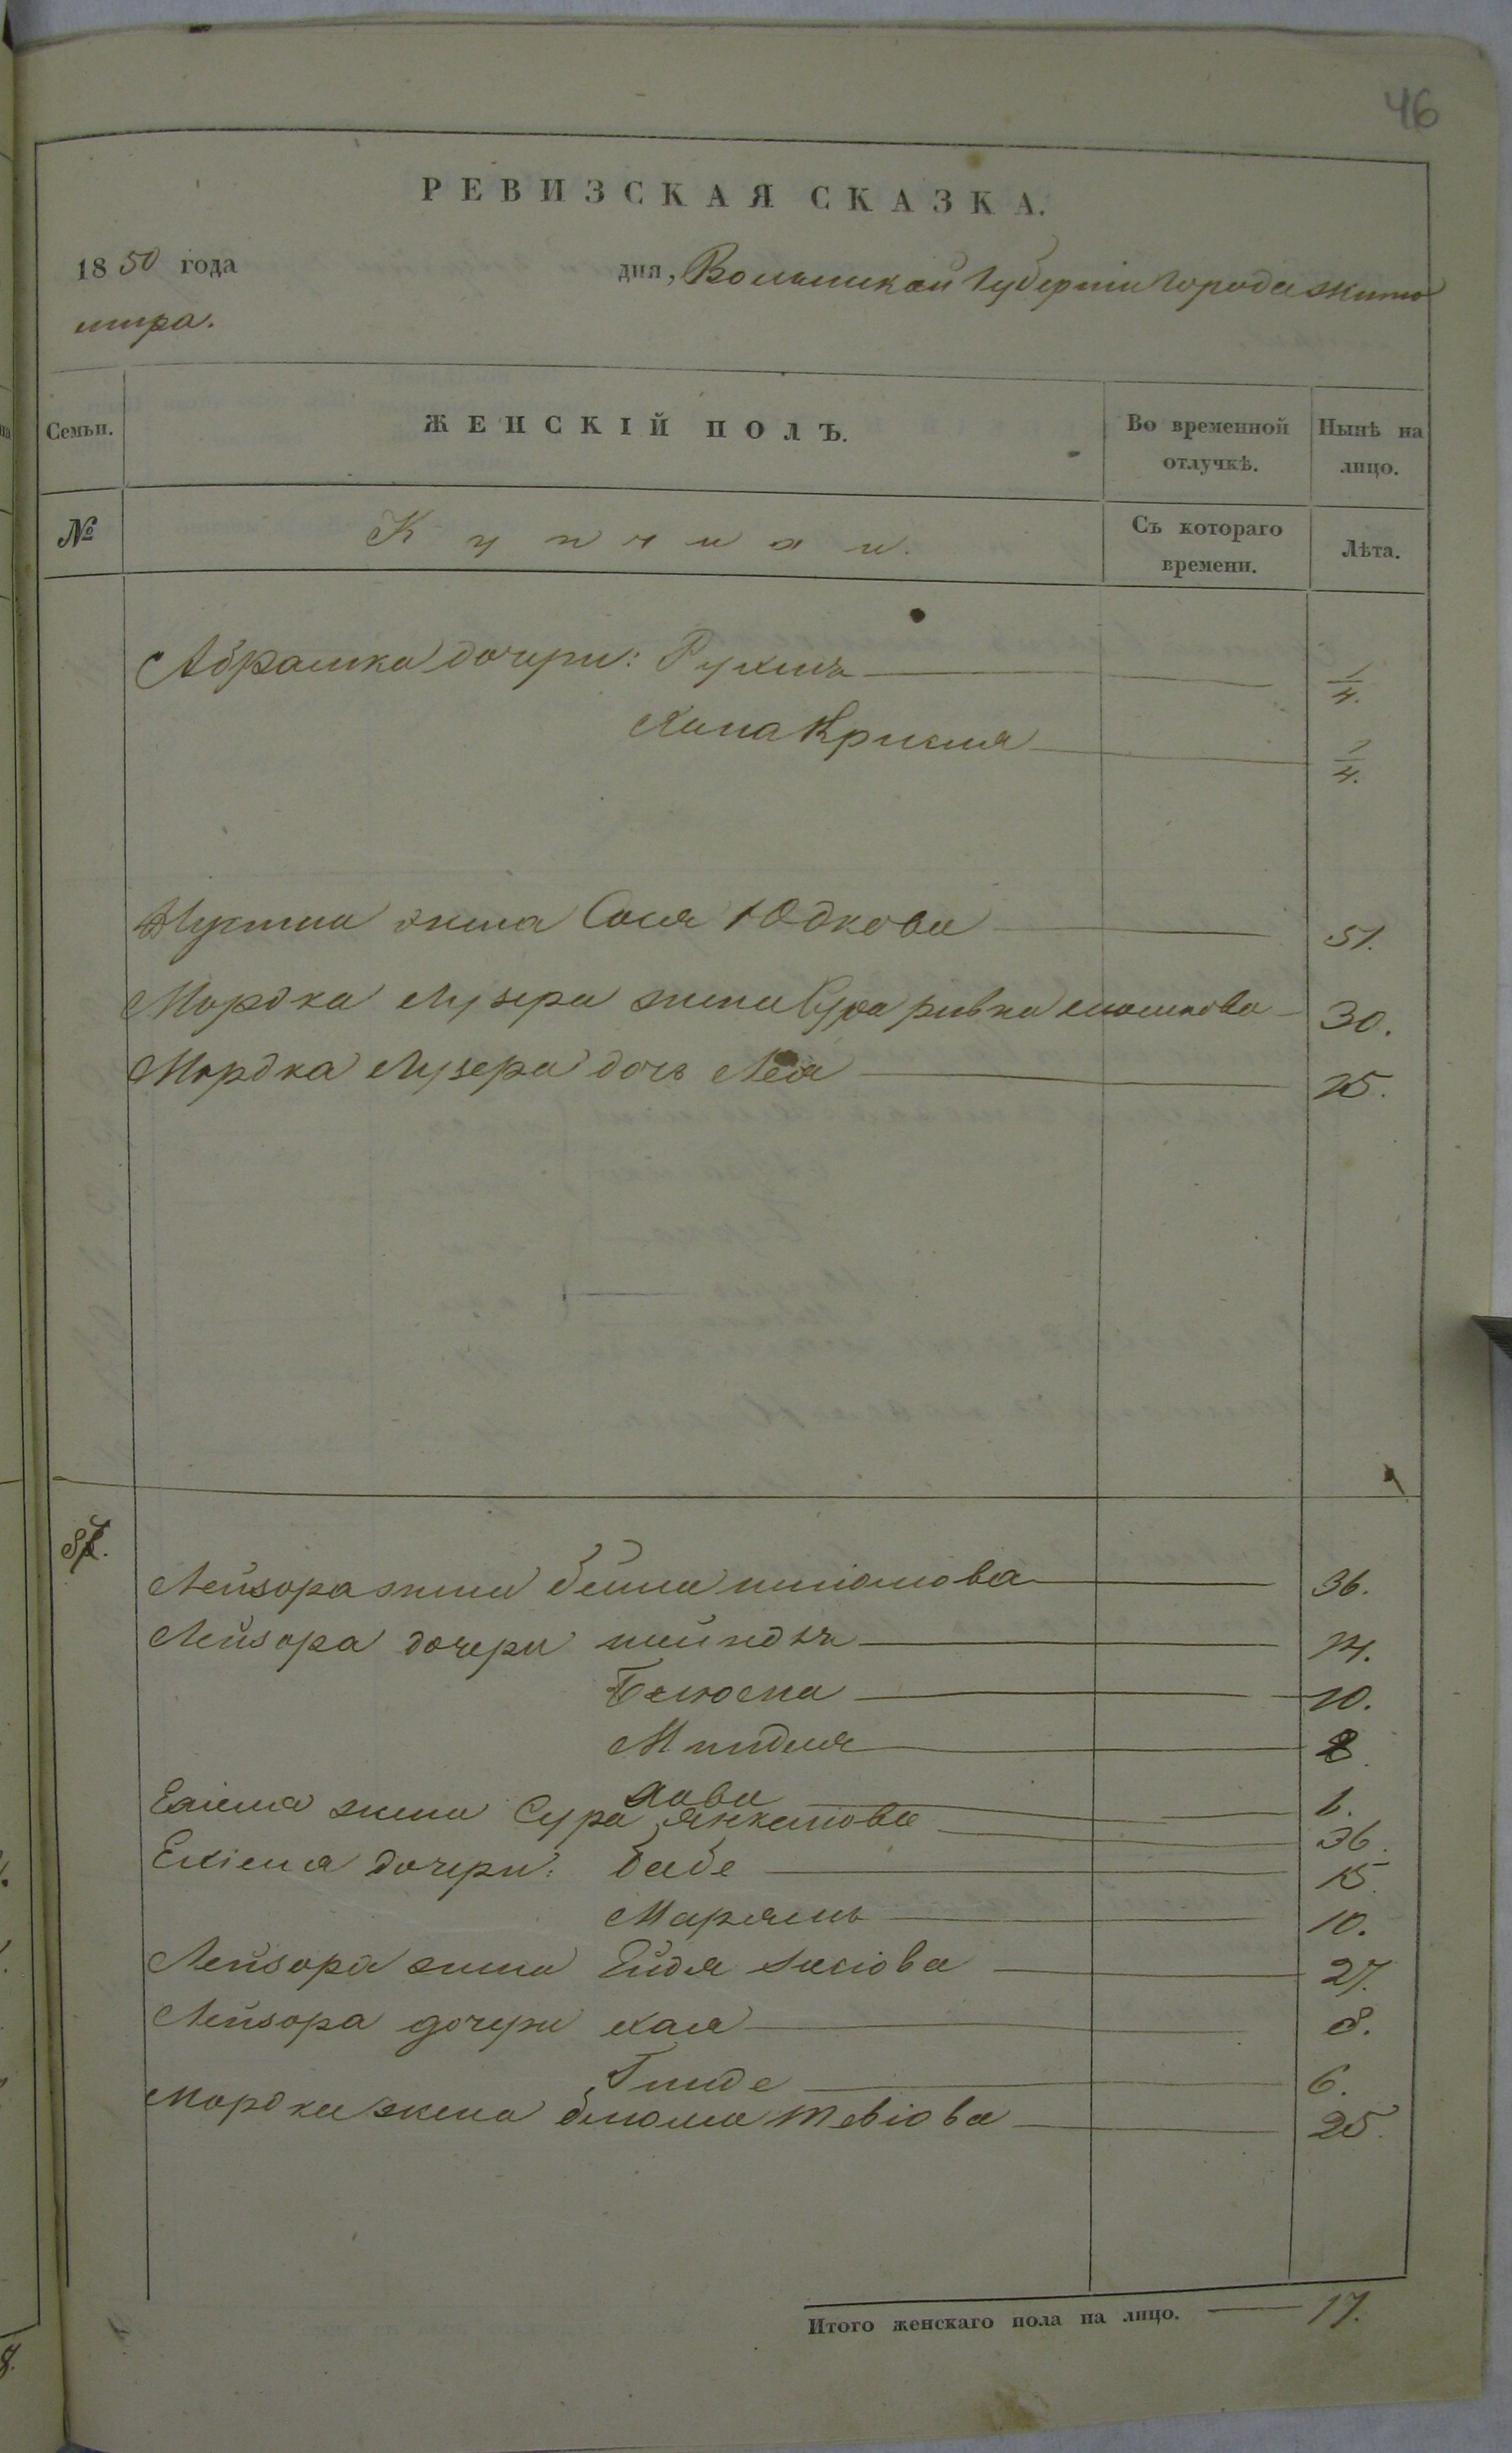 46
РЕВИЗСКАЯ СКАЗКА.
1850 года дня, Волынской Губерніи Города Жито
мира.
Семьи. ЖЕНСКІЙ ПОЛЪ. Во временной отлучкѣ. Нынѣ на лицо.
№ Съ котораго времени. Лѣта.
Абрамка дочери: Рухля 1/4.
Хана 1/4.
жена Сося Юдкова 51.
Мордка Лузера жена Сура Ривка Мошкова 30.
Мордка Лузера дочь Лея 15.
Лейзора жена Бейла 36.
Лейзора дочери Шейндля 14.
10.
Миндля 8.
Хава 1.
жена Сура Янкелева 36.
дочери: Бабе 15.
Марьямъ 10.
Лейзора жена Ейдя 27.
Лейзора дочери Хая 8.
Гинде 6.
Мордка жена Блюма Тевіова 25.
Итого женскаго пола на лицо. 17.